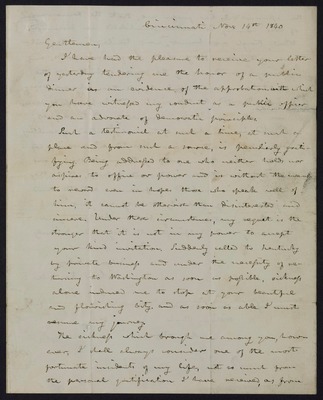 Cincinnati Nov 14th 1840
Gentlemen,
I have had the pleasure to receive your letter
of yesterday tendering me the honor of a public
dinner as an evidence of the approbation with which
you have witnessed my conduct as a public officer
and an advocate of democratic principles.
Such a testimonial at such a time, at such a
place and from such a source, is peculiarly grati-
fying. Being addressed to one who neither holds nor
aspires to office or power and is without the means
to reward even in hope those who speak well of
him, it cannot be otherwise than disinterested and
sincere. Under these circumstances, my regret is the
stronger that it is not in my power to accept
your kind invitation. Suddenly called to Kentucky
by private business and under the necessity of re-
turning to Washington as soon as possible, sickness
alone induced me to stop at your beautiful
and flourishing City, and as soon as able I must
resume my journey.
The sickness which brought me among you, how-
ever, I shall always consider one of the most
fortunate incidents of my life, not so much from
the personal gratification I have received, as from